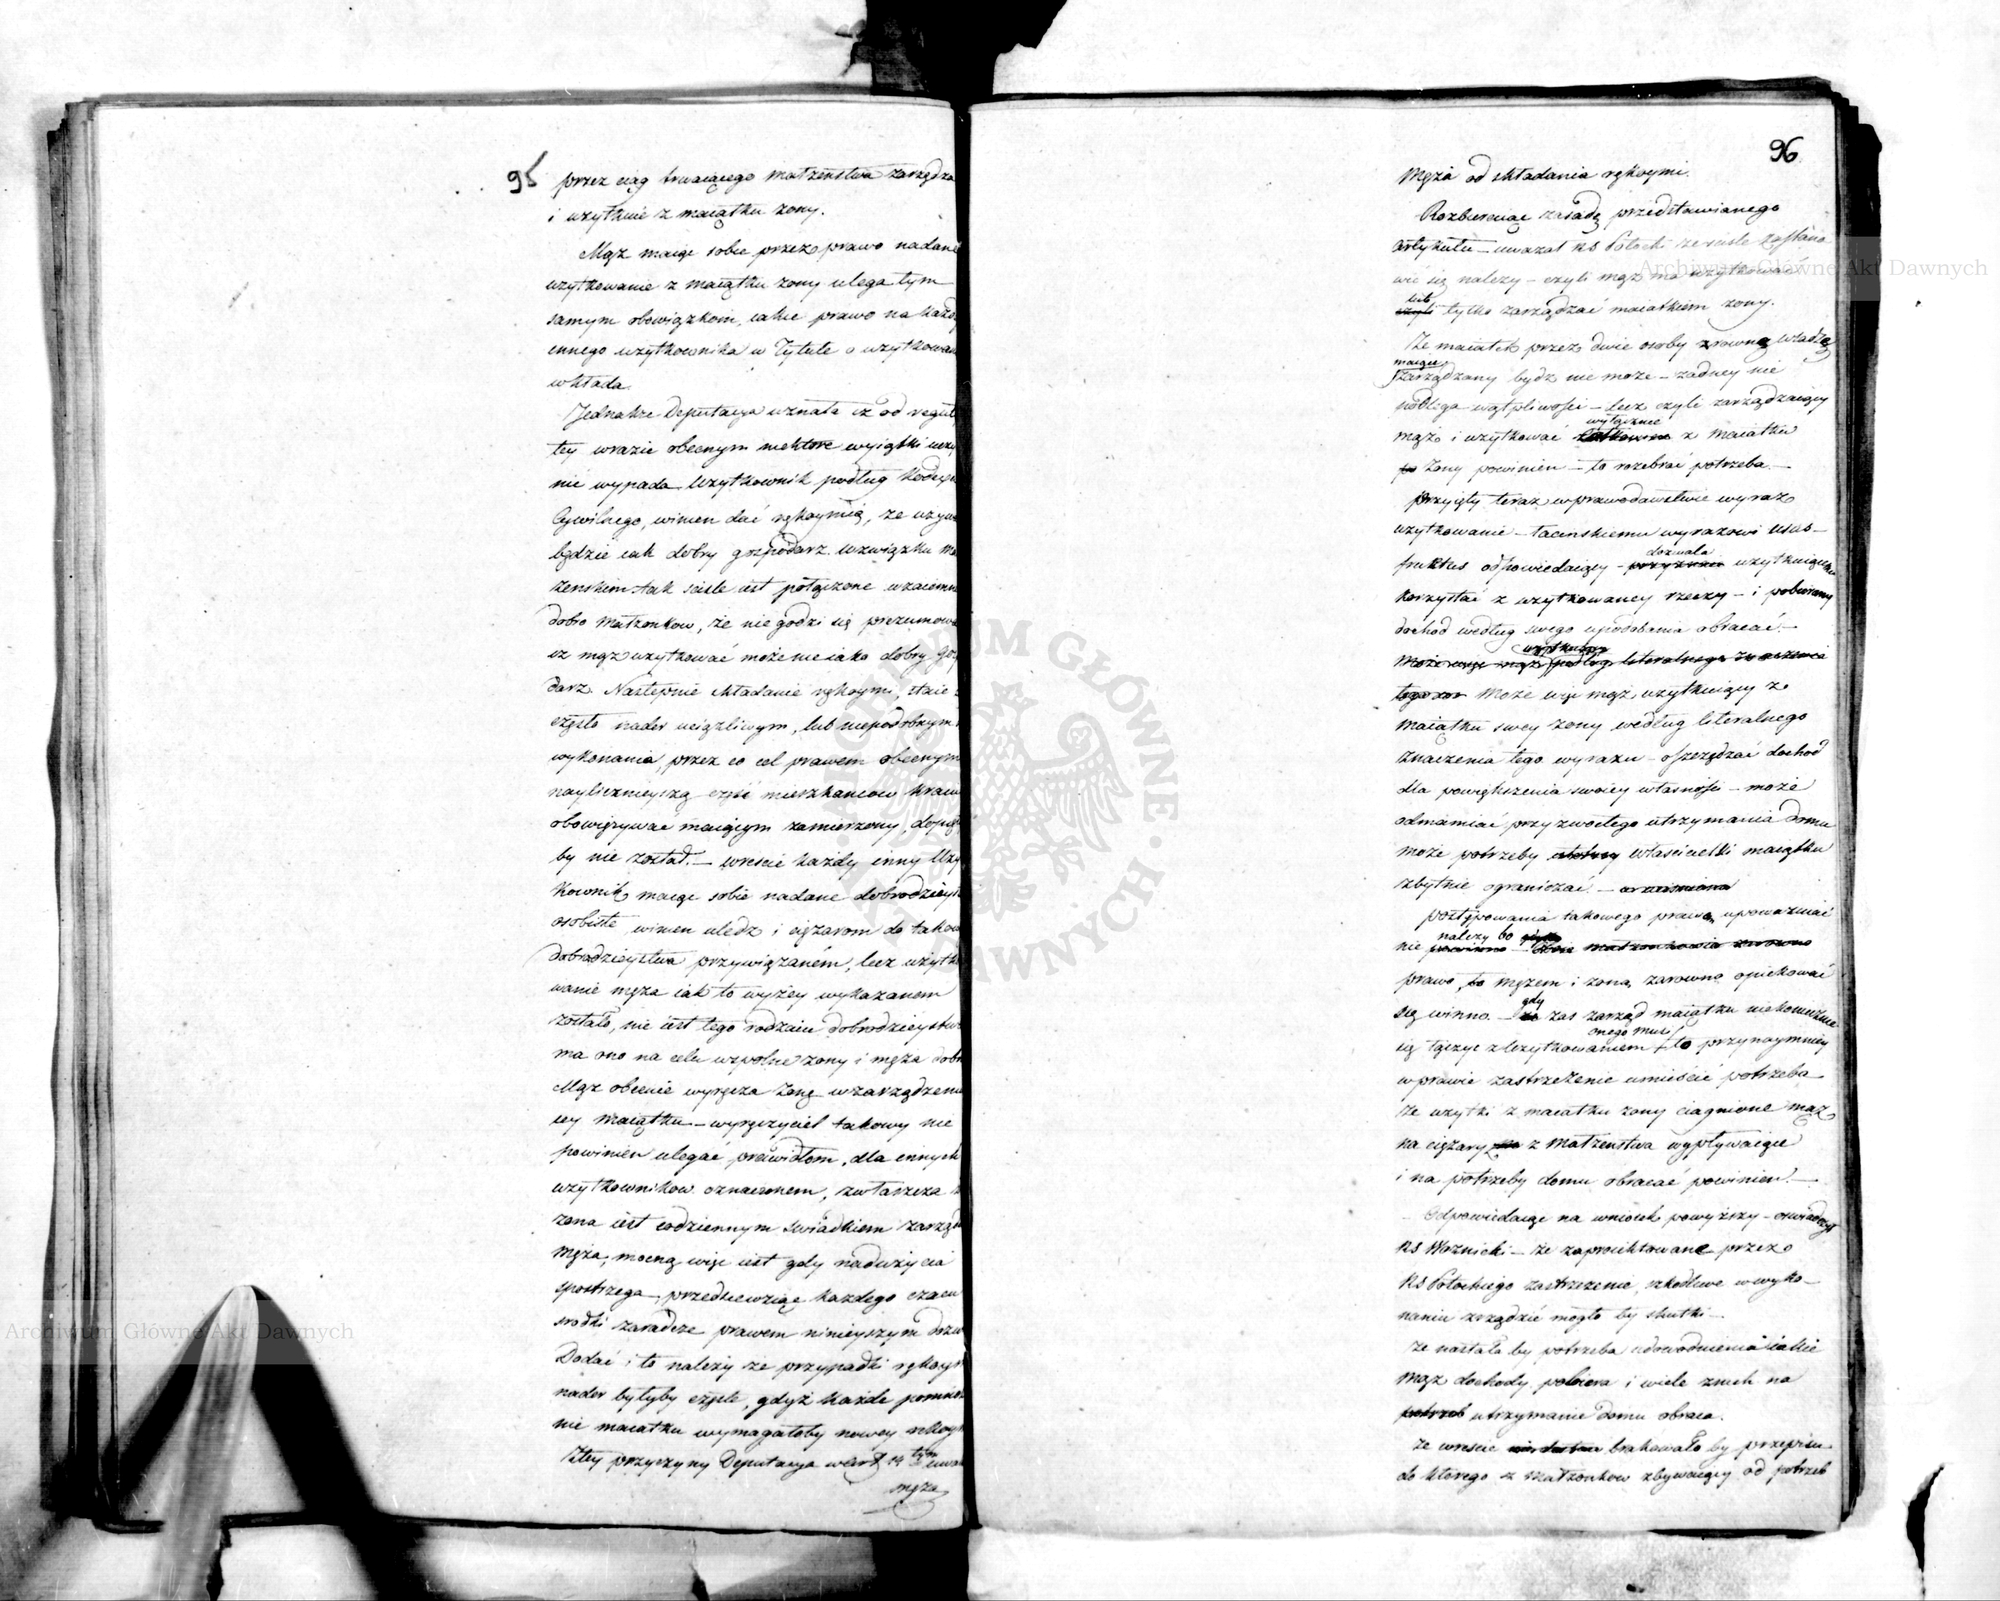 95
przez ciąg trwaiącego małżeństwa zarządza
i użytkuie z maiątku żony.
Mąż maiąc sobie przez prawo nadane
użytkowanie z maiątku żony ulega tym
samym obowiązkom, iakie prawo na każdeg
innego użytkownika w Tytule o użytkowan
wkłada.
Jednakże Deputacya uznała iż od reguł
tey w razie obecnym niektóre wyiątki uczy
nić wypada. Użytkownik podług Kodexu
Cywilnego, winien dać rękoymią, że używa
będzie iak dobry gospodarz. W związku ma
żeńskim tak ściśle iest połączone wzaiemne
dobro Małżonków, że nie godzi się prezumowa
iż mąż użytkować może nie iako dobry gos
darz. Następnie składanie rękoymi, staie
często nader uciążliwym, lub niepodobnym
wykonania, przez co cel prawem obecnym
naylicznieyszą część mieszkańców kraiu
obowięzywać maiącym zamierzony, dopię
by nie został. — Wreście każdy inny Uży
kownik maiąc sobie nadane dobrodzieys
osobiste, winien uledz i ciężarom do takow
dobrodzieystwa przywiązaném, lecz użytko
wanie męża iak to wyżey wykazanem
zostało, nie iest tego rodzaiu dobrodzieystwe
ma ono na celu wspólne żony i męża dobr
Mąż obecnie wyręcza żonę w zarządzeniu
iey maiątku — wyręczyciel takowy nie
powinien ulegać prawidłom, dla innych
użytkowników oznaczonem, zwłaszcza
żona iest codziennym świadkiem zarząd
męża, mocną więc iest gdy nadużycia
spostrzega, przedsięwziąć każdego czasu
srodki zaradcze prawem ninieyszym dozw
Dodać i to należy że przypadki rękoym
nader byłyby częste, gdyż każde pomnoże
nie maiątku wymagałoby nowey rękoym
Z tey przyczyny Deputacya w art 14 tym uwal
męża
96
Męża od składania rękoymi.
Rozbieraiąc zasadę przedstawianego
artykułu — uważał RS Potocki że ściśle zastano
wić się należy — czyli mąż ma użytkować
lub
czyli tylko zarządzać maiątkiem żony.
Że maiątek przez dwie osoby z równą władzą
maiące
zarządzany bydź nie może — żadney nie
podlega wątpliwości — lecz czyli zarządzaiący
wyłącznie
mąż i użytkować całkowicie z maiątku
żony powinien — to rozebrać potrzeba. —
Przyięty teraz w prawodawstwie wyraz
użytkowanie — łacińskiemu wyrazowi usus-
dozwala
fruktus odpowiedaiący — przyznaie użytkuiącemu
korzystać z użytkowaney rzeczy — i pobierany
dochód według swego upodobania obracać. —
użytkuiący
Może więc mąż podług literalnego znaczenia
tego wyr Może więc mąż użytkuiący z
maiątku swey żony według literalnego
znaczenia tego wyrazu — oszczędzać dochód
dla powiększenia swoiey własności — może
odmawiać przyzwoitego utrzymania domu
może potrzeby właścicielki maiątku
zbytnie ograniczać. —
postępowania takowego prawa upoważniać
należy bo
nie powinno — oboie małżonkowie zarówno
prawo, to mężem i żoną zarówno opiekować
gdy
się winno. — że zaś zarząd maiątku niekoniecznie
onego musi
się łączyć z Użytkowaniem — to przynaymniey
w prawie zastrzeżenie umieścić potrzeba
że użytki z maiątku żony ciągnione mąż
na ciężary z Małżeństwa wypływaiące
i na potrzeby domu obracać powinien. —
Odpowiedaiąc na wniosek powyższy — oświadczył
RS Woznicki — że zaproiektowane przez
RS Potockiego zastrzeżenie, szkodliwe w wyko-
naniu zrządzić mogło by skutki. —
że nastała by potrzeba udowodnienia iakie
mąż dochody pobiera i wiele z nich na
potrzeb utrzymanie domu obraca.
że wreście brakowało by przepisu
do którego z Małżonków zbywaiący od potrzeb